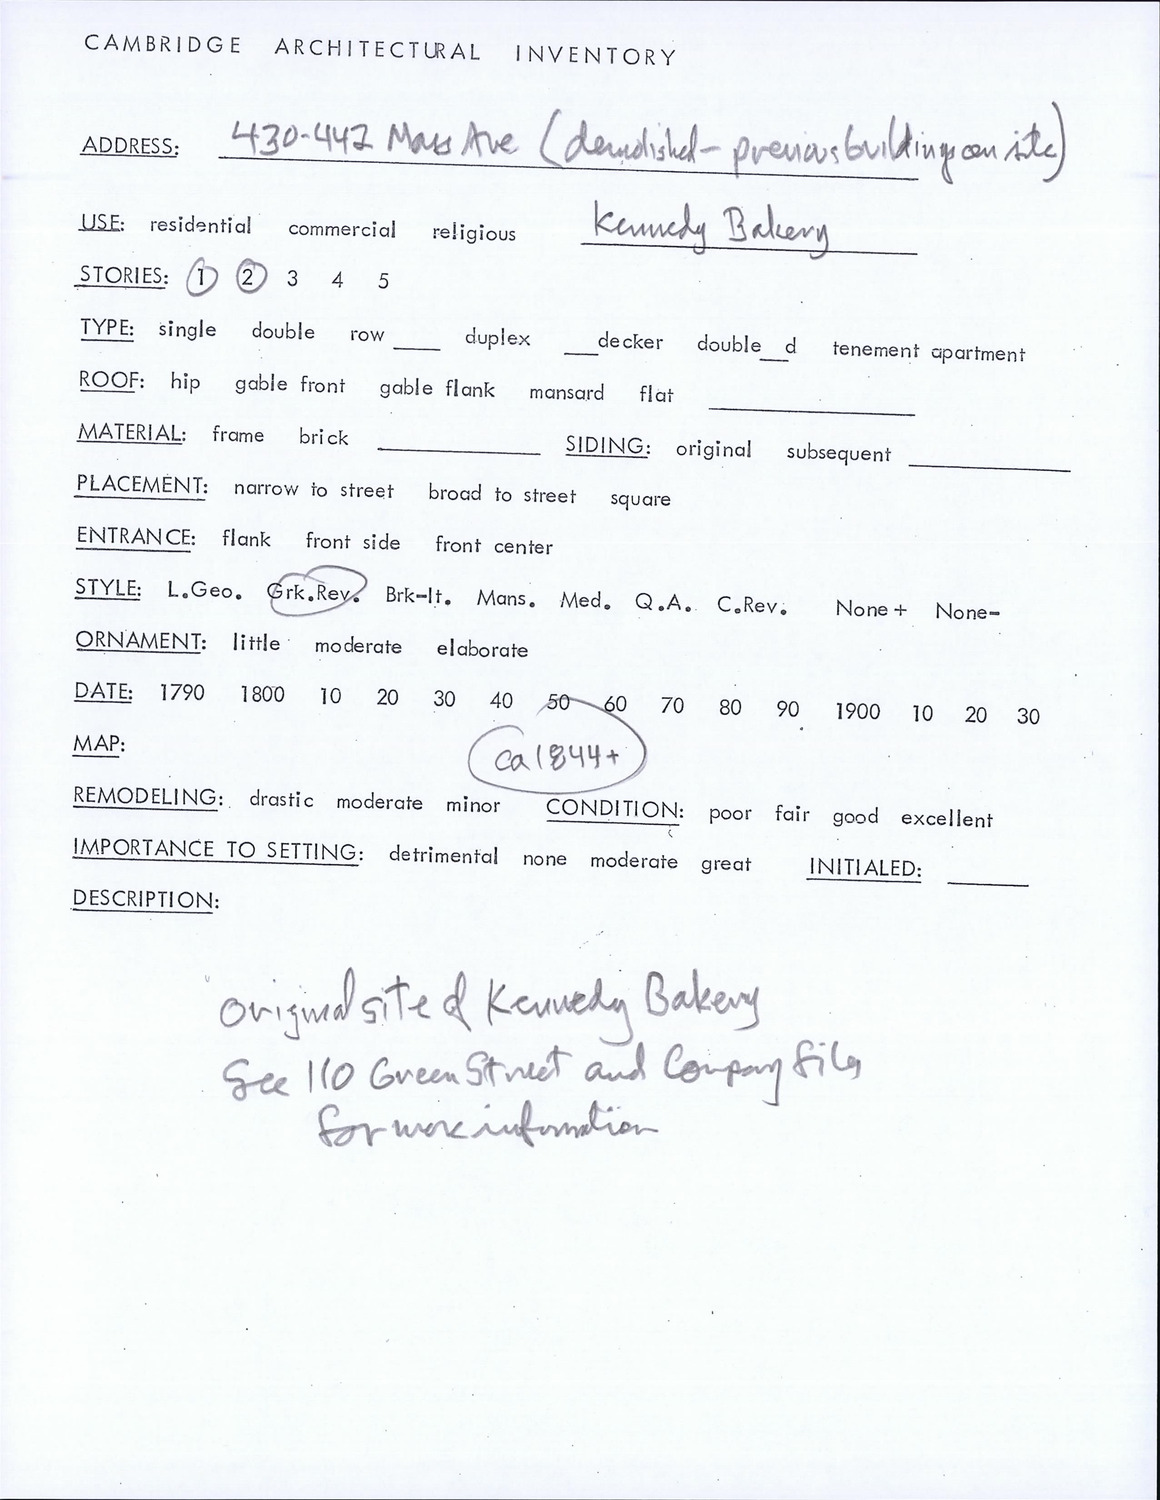 CAMBRIDGE ARCHITECTURAL INVENTORY
ADDRESS: 430-442 Mass Ave (demolished - previous buildings on site)
USE: residential commercial religious Kennedy Bakery
STORIES: 1 2 3 4 5
TYPE: single double row ____ duplex ___decker double___d tenement apartment
ROOF: hip gable front gable flank mansard flat ____
MATERIAL: frame brick ____ SIDING: original subsequent ____
PLACEMENT: narrow to street broad to street square
ENTRANCE: flank front side front center
STYLE: L.Geo. Grk.Rev. Brk-It. Mans. Med. Q.A. C.Rev. None+ None-
ORNAMENT: little moderate elaborate
DATE: 1790 1800 10 20 30 40 50 60 70 80 90 1900 10 20 30
MAP: ca 1844+
REMODELING: drastic moderate minor CONDITION: poor fair good excellent
IMPORTANCE TO SETTING: detrimental none moderate great INITIALED: ____
DESCRIPTION:
Original site of Kennedy Bakery
See 110 Green Street and Company files
for more information